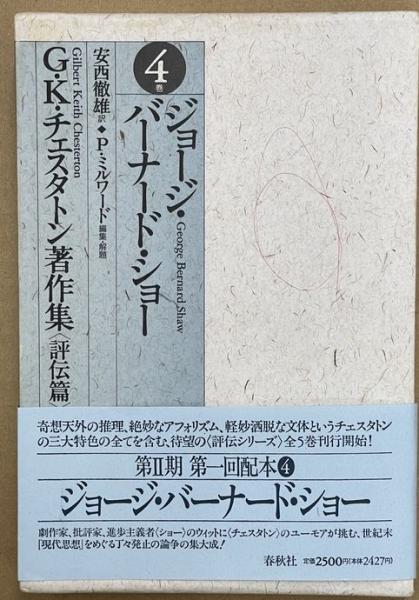 4
巻
ジョージ・
バーナード・ショー
George Bernard Shaw
安西徹雄 訳 ◆ P・ミルワード 編集・解題
Gilbert Keith Chesterton
G・K・チェスタトン著作集〈評伝篇〉
奇想天外の推理、絶妙なアフォリズム、軽妙洒脱な文体というチェスタトン
の三大特色の全てを含む、待望の〈評伝シリーズ〉全5巻刊行開始!
第II期 第一回配本4
ジョージ・バーナード・ショー
劇作家、批評家、進歩主義者〈ショー〉のウィットに〈チェスタトン〉のユーモアが挑む、世紀末
「現代思想」をめぐる丁々発止の論争の集大成!
春秋社 定価2500円(本体2427円)